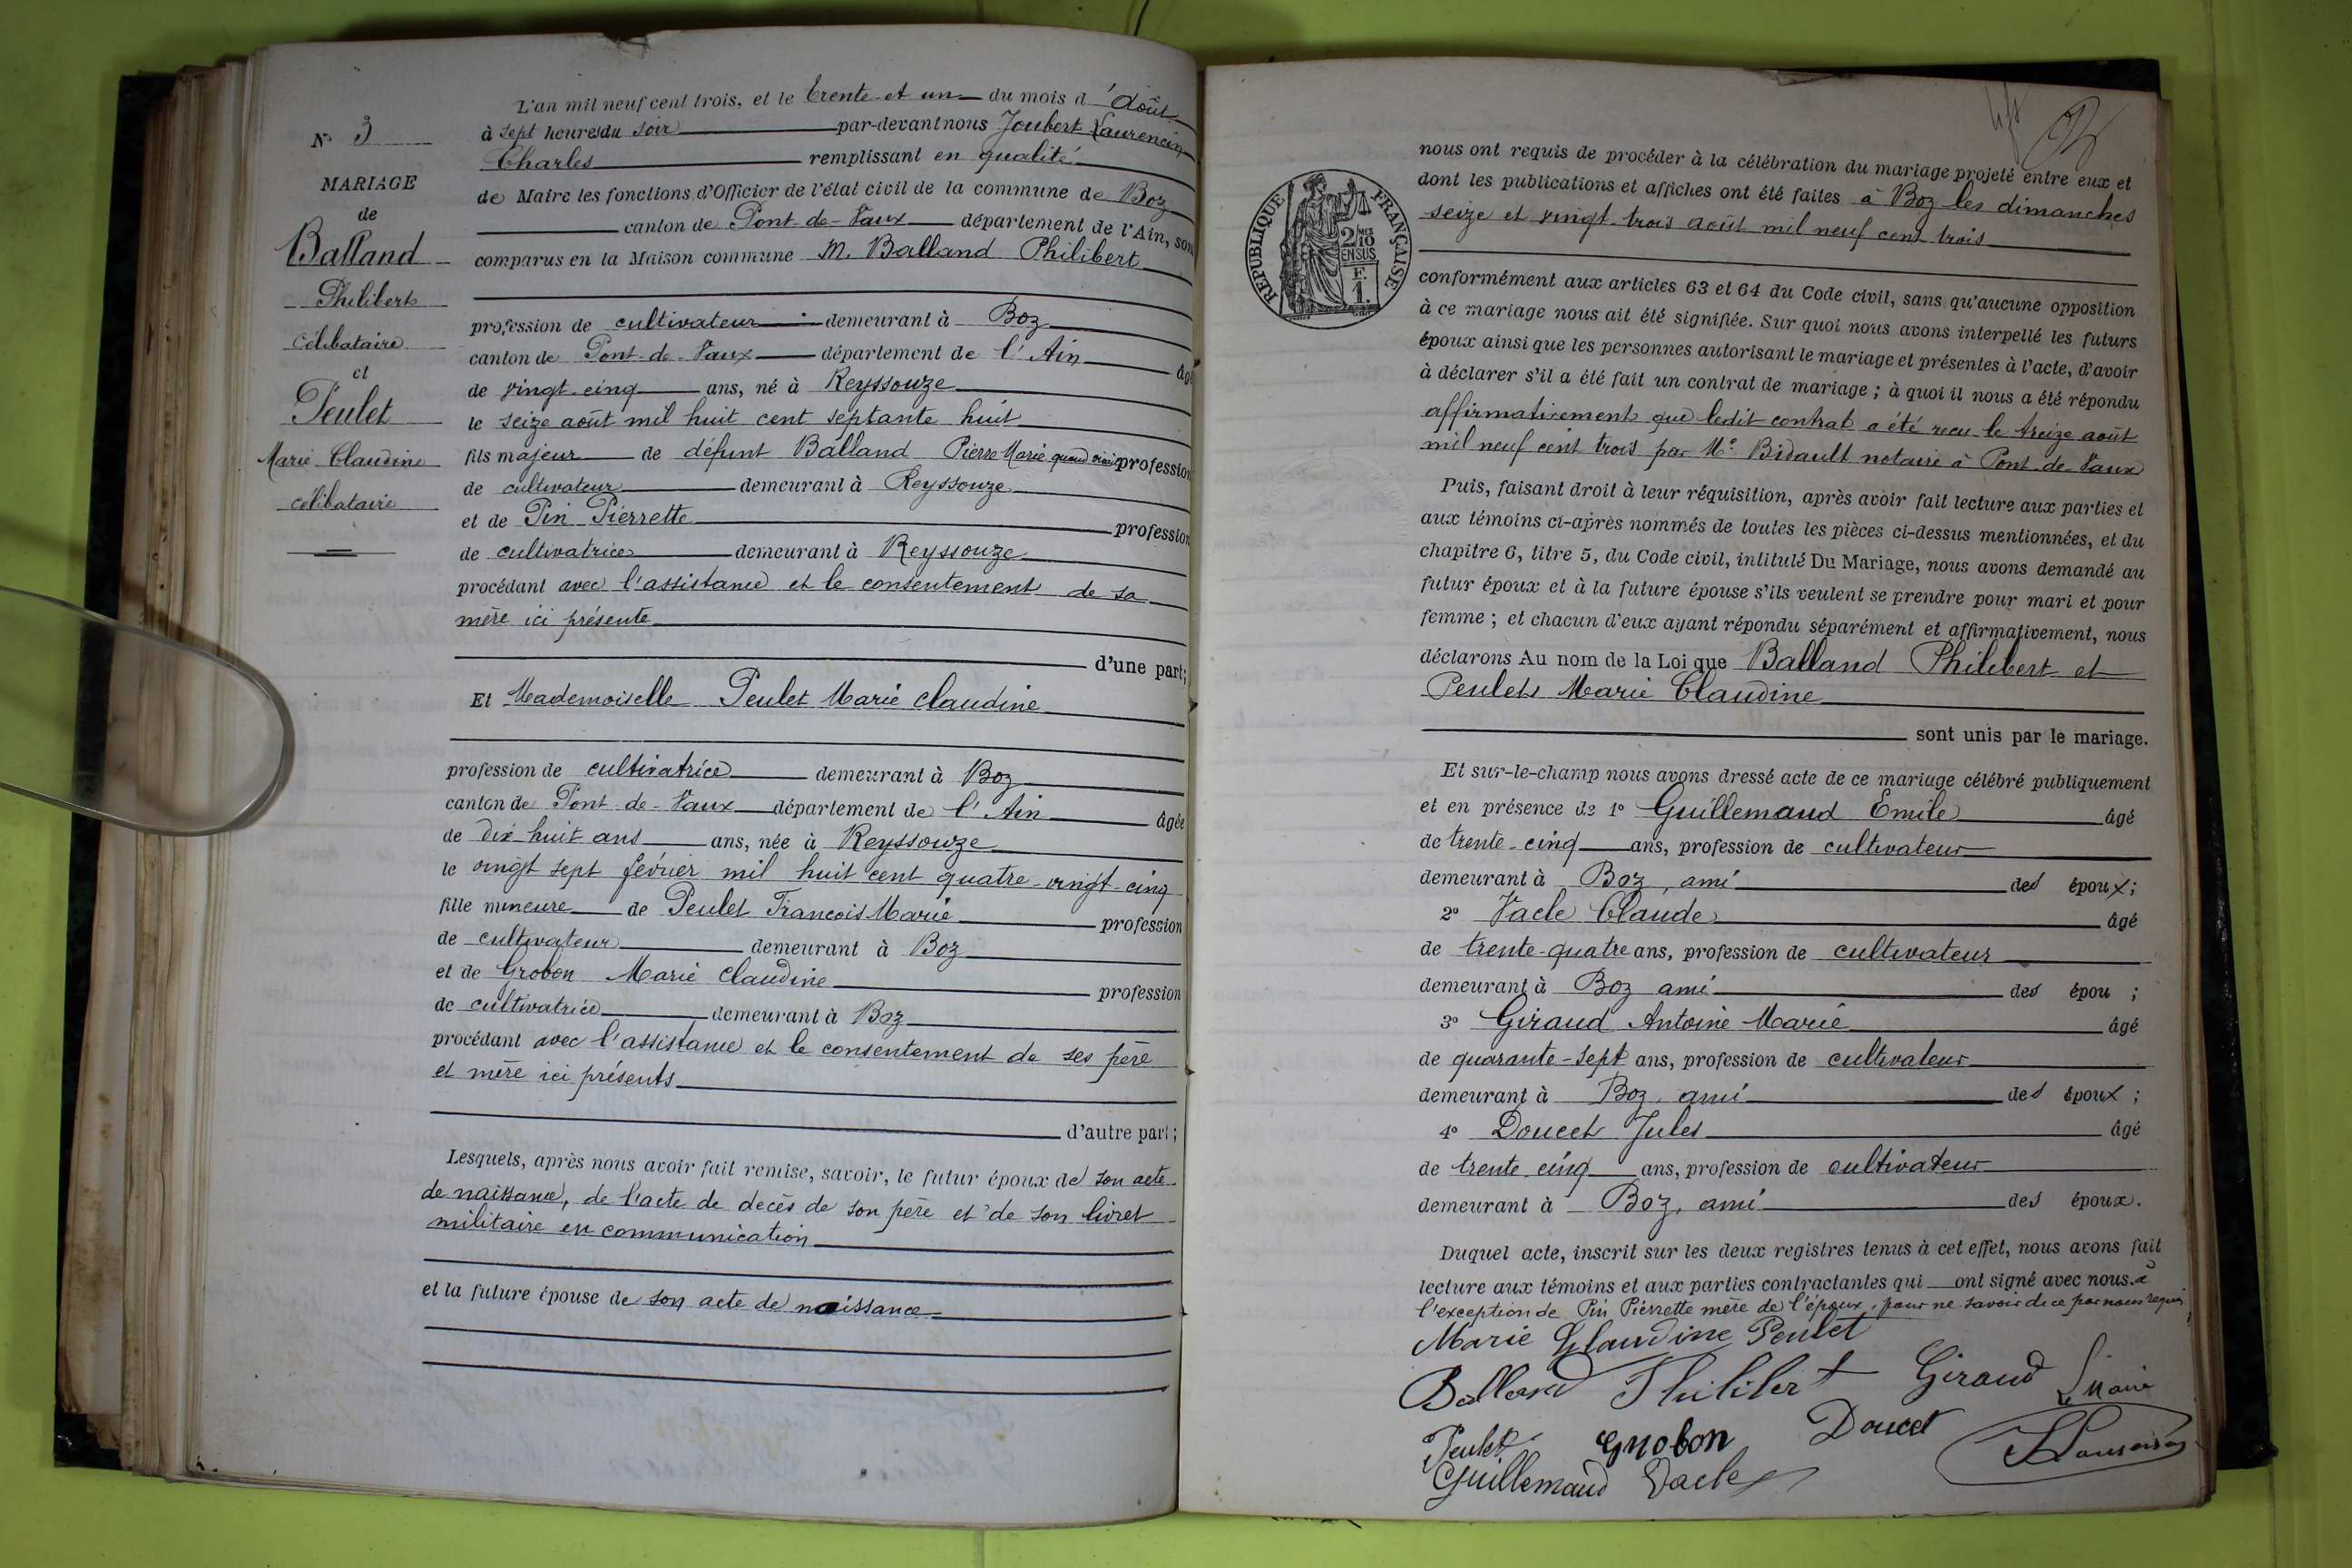 N° 3
MARIAGE
de
Balland
Philibert
célibataire
et
Peulet
Marie Claudine
célibataire
L'an mil neuf cent trois, et le trente-et un du mois d'août
à sept heures du soir par-devant nous Joubert Laurencin
Charles remplissant en qualité
de Maire les fonctions d'Officier de l'état civil de la commune de Boz
canton de Pont-de-Vaux département de l'Ain, sont
comparus en la Maison commune M. Balland Philibert
profession de cultivateur demeurant à Boz
canton de Pont-de-Vaux département de l'Ain âgé
de vingt-cinq ans, né à Reyssouze
le seize août mil huit cent septante huit
fils majeur de défunt Balland Pierre Marie quand vivait profession
de cultivateur demeurant à Reyssouze
et de Pin Pierrette profession
de cultivatrice demeurant à Reyssouze
procédant avec l'assistance et le consentement de sa
mère ici présente
d'une part;
Et Mademoiselle Peulet Marie Claudine
profession de cultivatrice demeurant à Boz
canton de Pont-de-Vaux département de l'Ain âgée
de dix huit ans ans, née à Reyssouze
le vingt sept février mil huit cent quatre-vingt-cinq
fille mineure de Peulet François Marie profession
de cultivateur demeurant à Boz
et de Grobon Marie Claudine profession
de cultivatrice demeurant à Boz
procédant avec l'assistance et le consentement de ses père
et mère ici présents
d'autre part;
Lesquels, après nous avoir fait remise, savoir, le futur époux de son acte
de naissance, de l'acte de decès de son père et de son livret
militaire en communication
et la future épouse de son acte de naissance
RÉPUBLIQUE FRANÇAISE
2/10 MES
EN SUS
F.
1.
nous ont requis de procéder à la célébration du mariage projeté entre eux et
dont les publications et affiches ont été faites à Boz les dimanches
seize et vingt-trois août mil neuf cent trois
conformément aux articles 63 et 64 du Code civil, sans qu'aucune opposition
à ce mariage nous ait été signifiée. Sur quoi nous avons interpellé les futurs
époux ainsi que les personnes autorisant le mariage et présentes à l'acte, d'avoir
à déclarer s'il a été fait un contrat de mariage; à quoi il nous a été répondu
affirmativement que ledit contrat a été reçu le treize août
mil neuf cent trois par Me Bidault notaire à Pont-de-Vaux
Puis, faisant droit à leur réquisition, après avoir fait lecture aux parties et
aux témoins ci-après nommés de toutes les pièces ci-dessus mentionnées, et du
chapitre 6, titre 5, du Code civil, intitulé Du Mariage, nous avons demandé au
futur époux et à la future épouse s'ils veulent se prendre pour mari et pour
femme; et chacun d'eux ayant répondu séparément et affirmativement, nous
déclarons Au nom de la Loi que Balland Philibert et
Peulet Marie Claudine
sont unis par le mariage.
Et sur-le-champ nous avons dressé acte de ce mariage célébré publiquement
et en présence de 1° Guillemaud Emile âgé
de trente-cinq ans, profession de cultivateur
demeurant à Boz, ami des époux;
2° Vacle Claude âgé
de trente-quatre ans, profession de cultivateur
demeurant à Boz ami des épou ;
3° Giraud Antoine Marie âgé
de quarante-sept ans, profession de cultivateur
demeurant à Boz, ami des époux ;
4° Doucet Jules âgé
de trente cinq ans, profession de cultivateur
demeurant à Boz, ami des époux.
Duquel acte, inscrit sur les deux registres tenus à cet effet, nous avons fait
lecture aux témoins et aux parties contractantes qui ont signé avec nous. à
l'exception de Pin Pierrette mère de l'époux, pour ne savoir de ce par nous requis
Marie Claudine Peulet
Balland Philibert Giraud Le Maire
Peulet Grobon Doucet
Guillemaud Vacle